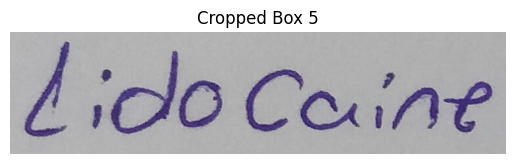 Cropped Box 5
Lidocaine